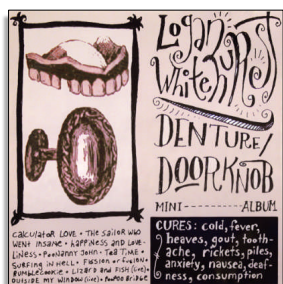 Logan
Whitehurst
DENTURE/
DOORKNOB
MINI ------- ALBUM
CALCULATOR LOVE • THE SAILOR WHO
WENT INSANE • HAPPINESS AND LOVE-
LINESS • POONANNY JOHN • TEA TIME •
SURFING IN HELL • FISSION or FUSION •
BUMBLEZOOKIE • LIZARD and FISH (live) •
OUTSIDE MY WINDOW (live) • POOPOO BRIDGE
CURES: cold, fever,
heaves, gout, tooth-
ache, rickets, piles,
anxiety, nausea, deaf-
ness, consumption